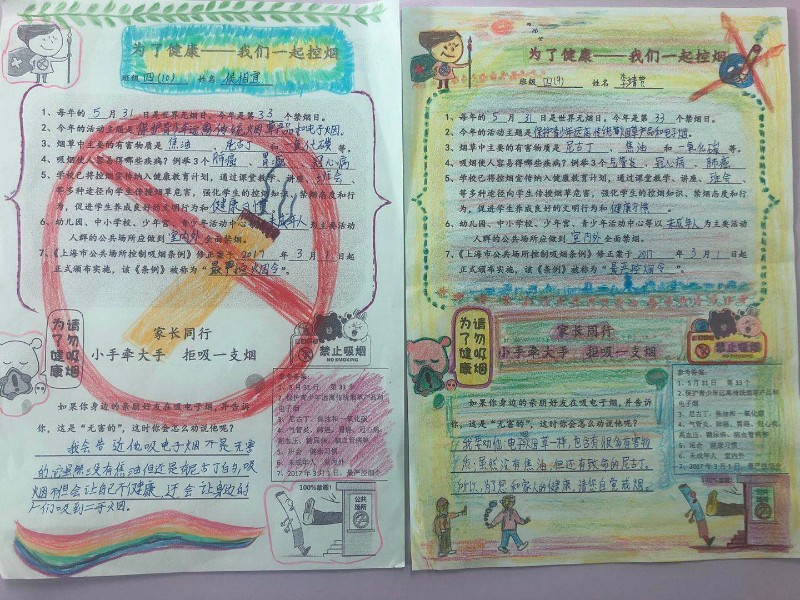 为了健康——我们一起控烟
班级 四(10) 姓名
1、每年的 5 月 31 日是世界无烟日。今年是第 33 个禁烟日。
2、今年的活动主题是 保护青少年远离传统烟草产品和电子烟。
3、烟草中主要的有害物质是 焦油 、 尼古丁 和 一氧化碳 等。
4、吸烟使人容易得哪些疾病？例举3个 肺癌、胃血、冠心病
5、学校已将控烟宣传纳入健康教育计划，通过课堂教学、讲座、班会、
等多种途径向学生传授烟草危害，强化学生的控烟知识、禁烟态度和行
为，促进学生养成良好的文明行为和 健康习惯 。
6、幼儿园、中小学校、少年宫、青少年活动中心等以 未成年人 为主要活动
人群的公共场所应做到 室内外 全面禁烟。
7、《上海市公共场所控制吸烟条例》修正案于 2017 年 3 月 1 日起
正式颁布实施，该《条例》被称为“最严控烟令”。
请勿吸烟
为了健康
家长同行
小手牵大手 拒吸一支烟
禁止吸烟
NO SMOKING
如果你身边的亲朋好友在吸电子烟，并告诉
你，这是“无害的”，这时你会怎么劝说他呢？
我会告诉他吸电子烟不是无害
的
没有焦油但还是有尼古丁的，吸
烟不但会让自己不健康，还会让身边的
人们吸到二手烟。
参考答案：
1、5月31日 第33个
2、保护青少年远离传统烟草产品和
电子烟
3、尼古丁、焦油和一氧化碳
4、气管炎、肺癌、胃癌、冠心病、
高血压、糖尿病、脑血管病等
5、班会 健康习惯
6、未成年人 室内外
7、2017年3月1日，最严控烟令
100%禁烟！
公共场所
为了健康——我们一起控烟
班级 四(9) 姓名
1、每年的 5 月 31 日是世界无烟日。今年是第 33 个禁烟日。
2、今年的活动主题是 保护青少年远离传统烟草产品和电子烟。
3、烟草中主要的有害物质是 尼古丁 、 焦油 和 一氧化碳 等。
4、吸烟使人容易得哪些疾病？例举3个 气管炎、冠心病、肺癌
5、学校已将控烟宣传纳入健康教育计划，通过课堂教学、讲座、班会、
等多种途径向学生传授烟草危害，强化学生的控烟知识、禁烟态度和行
为，促进学生养成良好的文明行为和 健康习惯 。
6、幼儿园、中小学校、少年宫、青少年活动中心等以 未成年人 为主要活动
人群的公共场所应做到 室内外 全面禁烟。
7、《上海市公共场所控制吸烟条例》修正案于 2017 年 3 月 1 日起
正式颁布实施，该《条例》被称为“最严控烟令”。
请勿吸烟
为了健康
家长同行
小手牵大手 拒吸一支烟
禁止吸烟
NO SMOKING
如果你身边的亲朋好友在吸电子烟，并告诉
你，这是“无害的”，这时你会怎么劝说他呢？
我要劝他：电子烟跟烟草一样，也含有很多有害物
质，虽然没有焦油，但还有致命的尼古丁。
所以，为了您和家人的健康，请您自觉戒烟。
参考答案：
1、5月31日 第33个
2、保护青少年远离传统烟草产品和
电子烟
3、尼古丁、焦油和一氧化碳
4、气管炎、肺癌、胃癌、冠心病、
高血压、糖尿病、脑血管病等
5、班会 健康习惯
6、未成年人 室内外
7、2017年3月1日，最严控烟令
100%禁烟！
公共场所